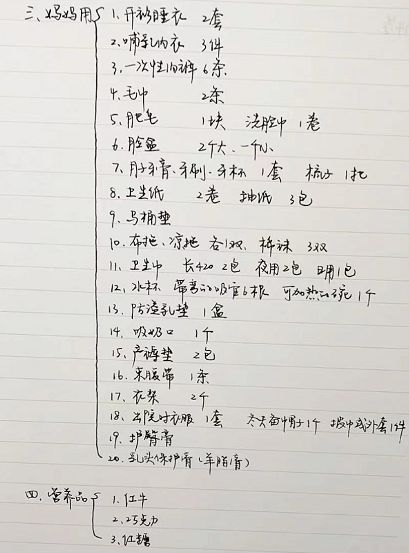 三、妈妈用 1. 开衫睡衣 2套
2. 哺乳内衣 3件
3. 一次性内裤 6条
4. 毛巾 2条
5. 肥皂 1块 洗脸巾 1卷
6. 脸盆 2个大、一个小
7. 月子牙膏、牙刷、牙杯 1套 梳子 1把
8. 卫生纸 2卷 抽纸 3包
9. 马桶垫
10. 布拖、凉拖 各1双 棉袜 3双
11. 卫生巾 长420 2包 夜用2包 日用1包
12. 水杯 带弯的吸管6根 可加热的碗 1个
13. 防溢乳垫 1盒
14. 吸奶口 1个
15. 产褥垫 2包
16. 束腹带 1条
17. 衣架 2个
18. 出院时衣服 1套 冬天备帽子1个 披巾或外套1件
19. 护臀膏
20. 乳头保护膏(羊脂膏)
四、营养品 1. 红牛
2. 巧克力
3. 红糖